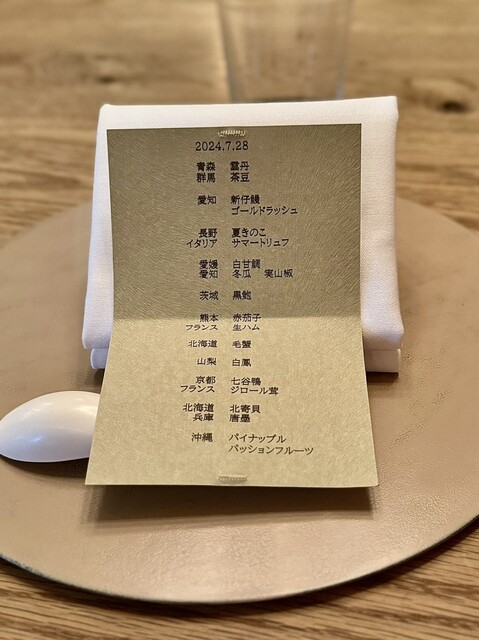 2024.7.28
青森 雲丹
群馬 茶豆
愛知 新仔鰻
ゴールドラッシュ
長野 夏きのこ
イタリア サマートリュフ
愛媛 白甘鯛
愛知 冬瓜 実山椒
茨城 黒鮑
熊本 赤茄子
フランス 生ハム
北海道 毛蟹
山梨 白鳳
京都 七谷鴨
フランス ジロール茸
北海道 北寄貝
兵庫 唐墨
沖縄 パイナップル
パッションフルーツ